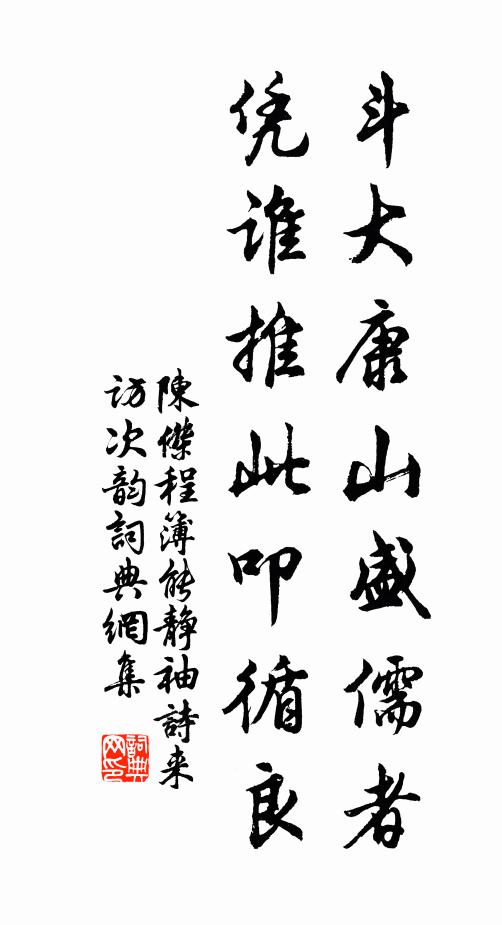 斗大康山盛儒者
凭谁推此叩循良
陳傑程簿能静袖詩来
访次韵詞典網集
詞典网印